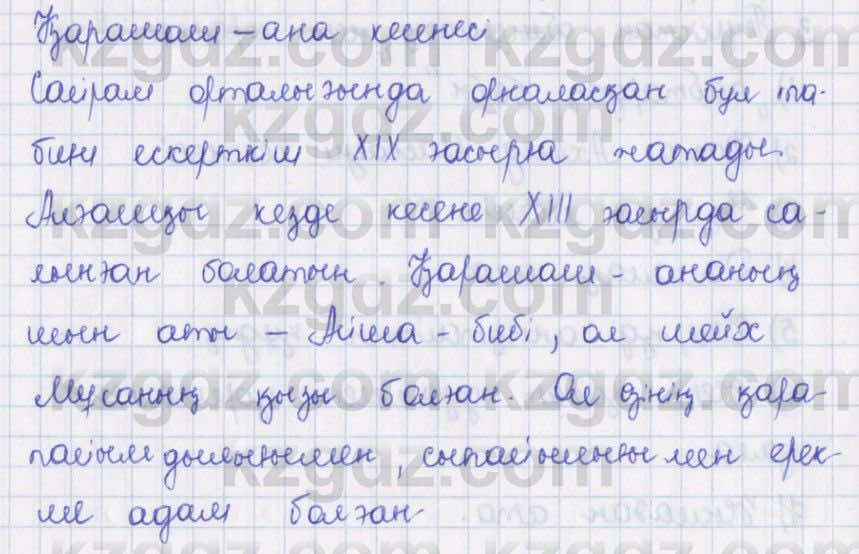 Қарашаш – ана кесенесі
Сайрам орталығында орналасқан бұл та-
биғи ескерткіш XIX ғасырға жатады.
Алғашқы кезде кесене XIII ғасырда са-
лынған болатын. Қарашаш - ананың
шын аты – Айша - бибі, ол шейх
Мұсаның қызы болған. Ол өзінің қара-
пайымдылығымен, сыпайылығымен ерек-
ше адам болған.
kzgdz.com